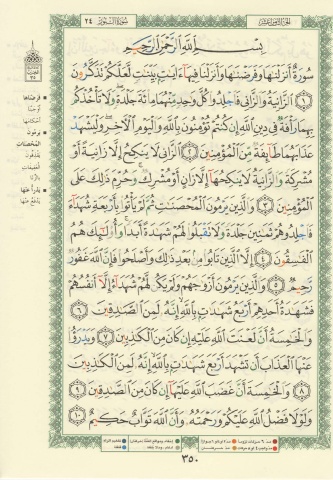 سُورَةُ النُّور
٢٤
بِسْمِ اللَّهِ الرَّحْمَٰنِ الرَّحِيمِ
سُورَةٌ أَنزَلْنَٰهَا وَفَرَضْنَٰهَا وَأَنزَلْنَا فِيهَآ ءَايَٰتٍۭ بَيِّنَٰتٍ لَّعَلَّكُمْ تَذَكَّرُونَ
١ الزَّانِيَةُ وَالزَّانِى فَاجْلِدُوا۟ كُلَّ وَٰحِدٍ مِّنْهُمَا مِا۟ئَةَ جَلْدَةٍ وَلَا تَأْخُذْكُم
بِهِمَا رَأْفَةٌ فِى دِينِ اللَّهِ إِن كُنتُمْ تُؤْمِنُونَ بِاللَّهِ وَالْيَوْمِ الْءَاخِرِ وَلْيَشْهَدْ
عَذَابَهُمَا طَآئِفَةٌ مِّنَ الْمُؤْمِنِينَ ٢ الزَّانِى لَا يَنكِحُ إِلَّا زَانِيَةً أَوْ
مُشْرِكَةً وَالزَّانِيَةُ لَا يَنكِحُهَآ إِلَّا زَانٍ أَوْ مُشْرِكٌ وَحُرِّمَ ذَٰلِكَ عَلَى
الْمُؤْمِنِينَ ٣ وَالَّذِينَ يَرْمُونَ الْمُحْصَنَٰتِ ثُمَّ لَمْ يَأْتُوا۟ بِأَرْبَعَةِ شُهَدَآءَ
فَاجْلِدُوهُمْ ثَمَٰنِينَ جَلْدَةً وَلَا تَقْبَلُوا۟ لَهُمْ شَهَٰدَةً أَبَدًا وَأُو۟لَٰٓئِكَ هُمُ
الْفَٰسِقُونَ ٤ إِلَّا الَّذِينَ تَابُوا۟ مِنۢ بَعْدِ ذَٰلِكَ وَأَصْلَحُوا۟ فَإِنَّ اللَّهَ غَفُورٌ
رَّحِيمٌ ٥ وَالَّذِينَ يَرْمُونَ أَزْوَٰجَهُمْ وَلَمْ يَكُن لَّهُمْ شُهَدَآءُ إِلَّآ أَنفُسُهُمْ
فَشَهَٰدَةُ أَحَدِهِمْ أَرْبَعُ شَهَٰدَٰتٍۭ بِاللَّهِ إِنَّهُۥ لَمِنَ الصَّٰدِقِينَ ٦
وَالْخَٰمِسَةُ أَنَّ لَعْنَتَ اللَّهِ عَلَيْهِ إِن كَانَ مِنَ الْكَٰذِبِينَ ٧ وَيَدْرَؤُا۟
عَنْهَا الْعَذَابَ أَن تَشْهَدَ أَرْبَعَ شَهَٰدَٰتٍۭ بِاللَّهِ إِنَّهُۥ لَمِنَ الْكَٰذِبِينَ
٨ وَالْخَٰمِسَةَ أَنَّ غَضَبَ اللَّهِ عَلَيْهَآ إِن كَانَ مِنَ الصَّٰدِقِينَ ٩
وَلَوْلَا فَضْلُ اللَّهِ عَلَيْكُمْ وَرَحْمَتُهُۥ وَأَنَّ اللَّهَ تَوَّابٌ حَكِيمٌ ١٠
فَرَضْنَاهَا
يَرْمُونَ
المُحْصَنَاتِ
يَدْرَأُ عَنْهَا
٣٥٠